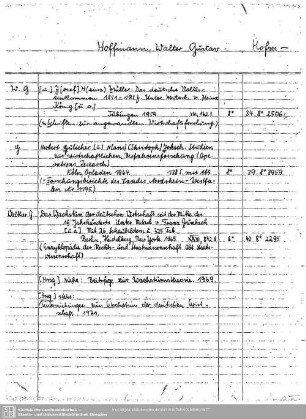 Hoffmann, Walter Gustav Hofm -
W. G. [u. a.] J[osef] H[einz] Müller: Das deutsche Volks-
einkommen 1851-1957. Unter Mitarb. v. Heinz
König [u. a.]
Tübingen 1959. 8° 34. 8° 2506.
(= Schriften zur angewandten Wirtschaftsforschung.)
Herbert Gülicher [u.] Hans Christoph Joksch: Studien
zur wirtschaftlichen Verfahrensforschung (Ope-
rations Research).
Köln, Opladen 1964. 8° 39. 8° 3959.
(= Forschungsberichte des Landes Nordrhein-Westfa-
len
Walther G. Das Wachstum der deutschen Wirtschaft seit der Mitte des
19. Jahrhunderts. Unter Mitarb. v. Franz Grumbach
[u. a.] Mit
Berlin, Heidelberg, New York 1965. 8° 40. 8° 2295
(Enzyklopädie der Rechts- und Staatswissenschaft Abt. Staats-
wissenschaft)
[Hrsg.] siehe: Beiträge zur Wachstumstheorie. 1969.
[Hrsg.] siehe:
Untersuchungen zum Wachstum der deutschen Wirt-
schaft. 1971.